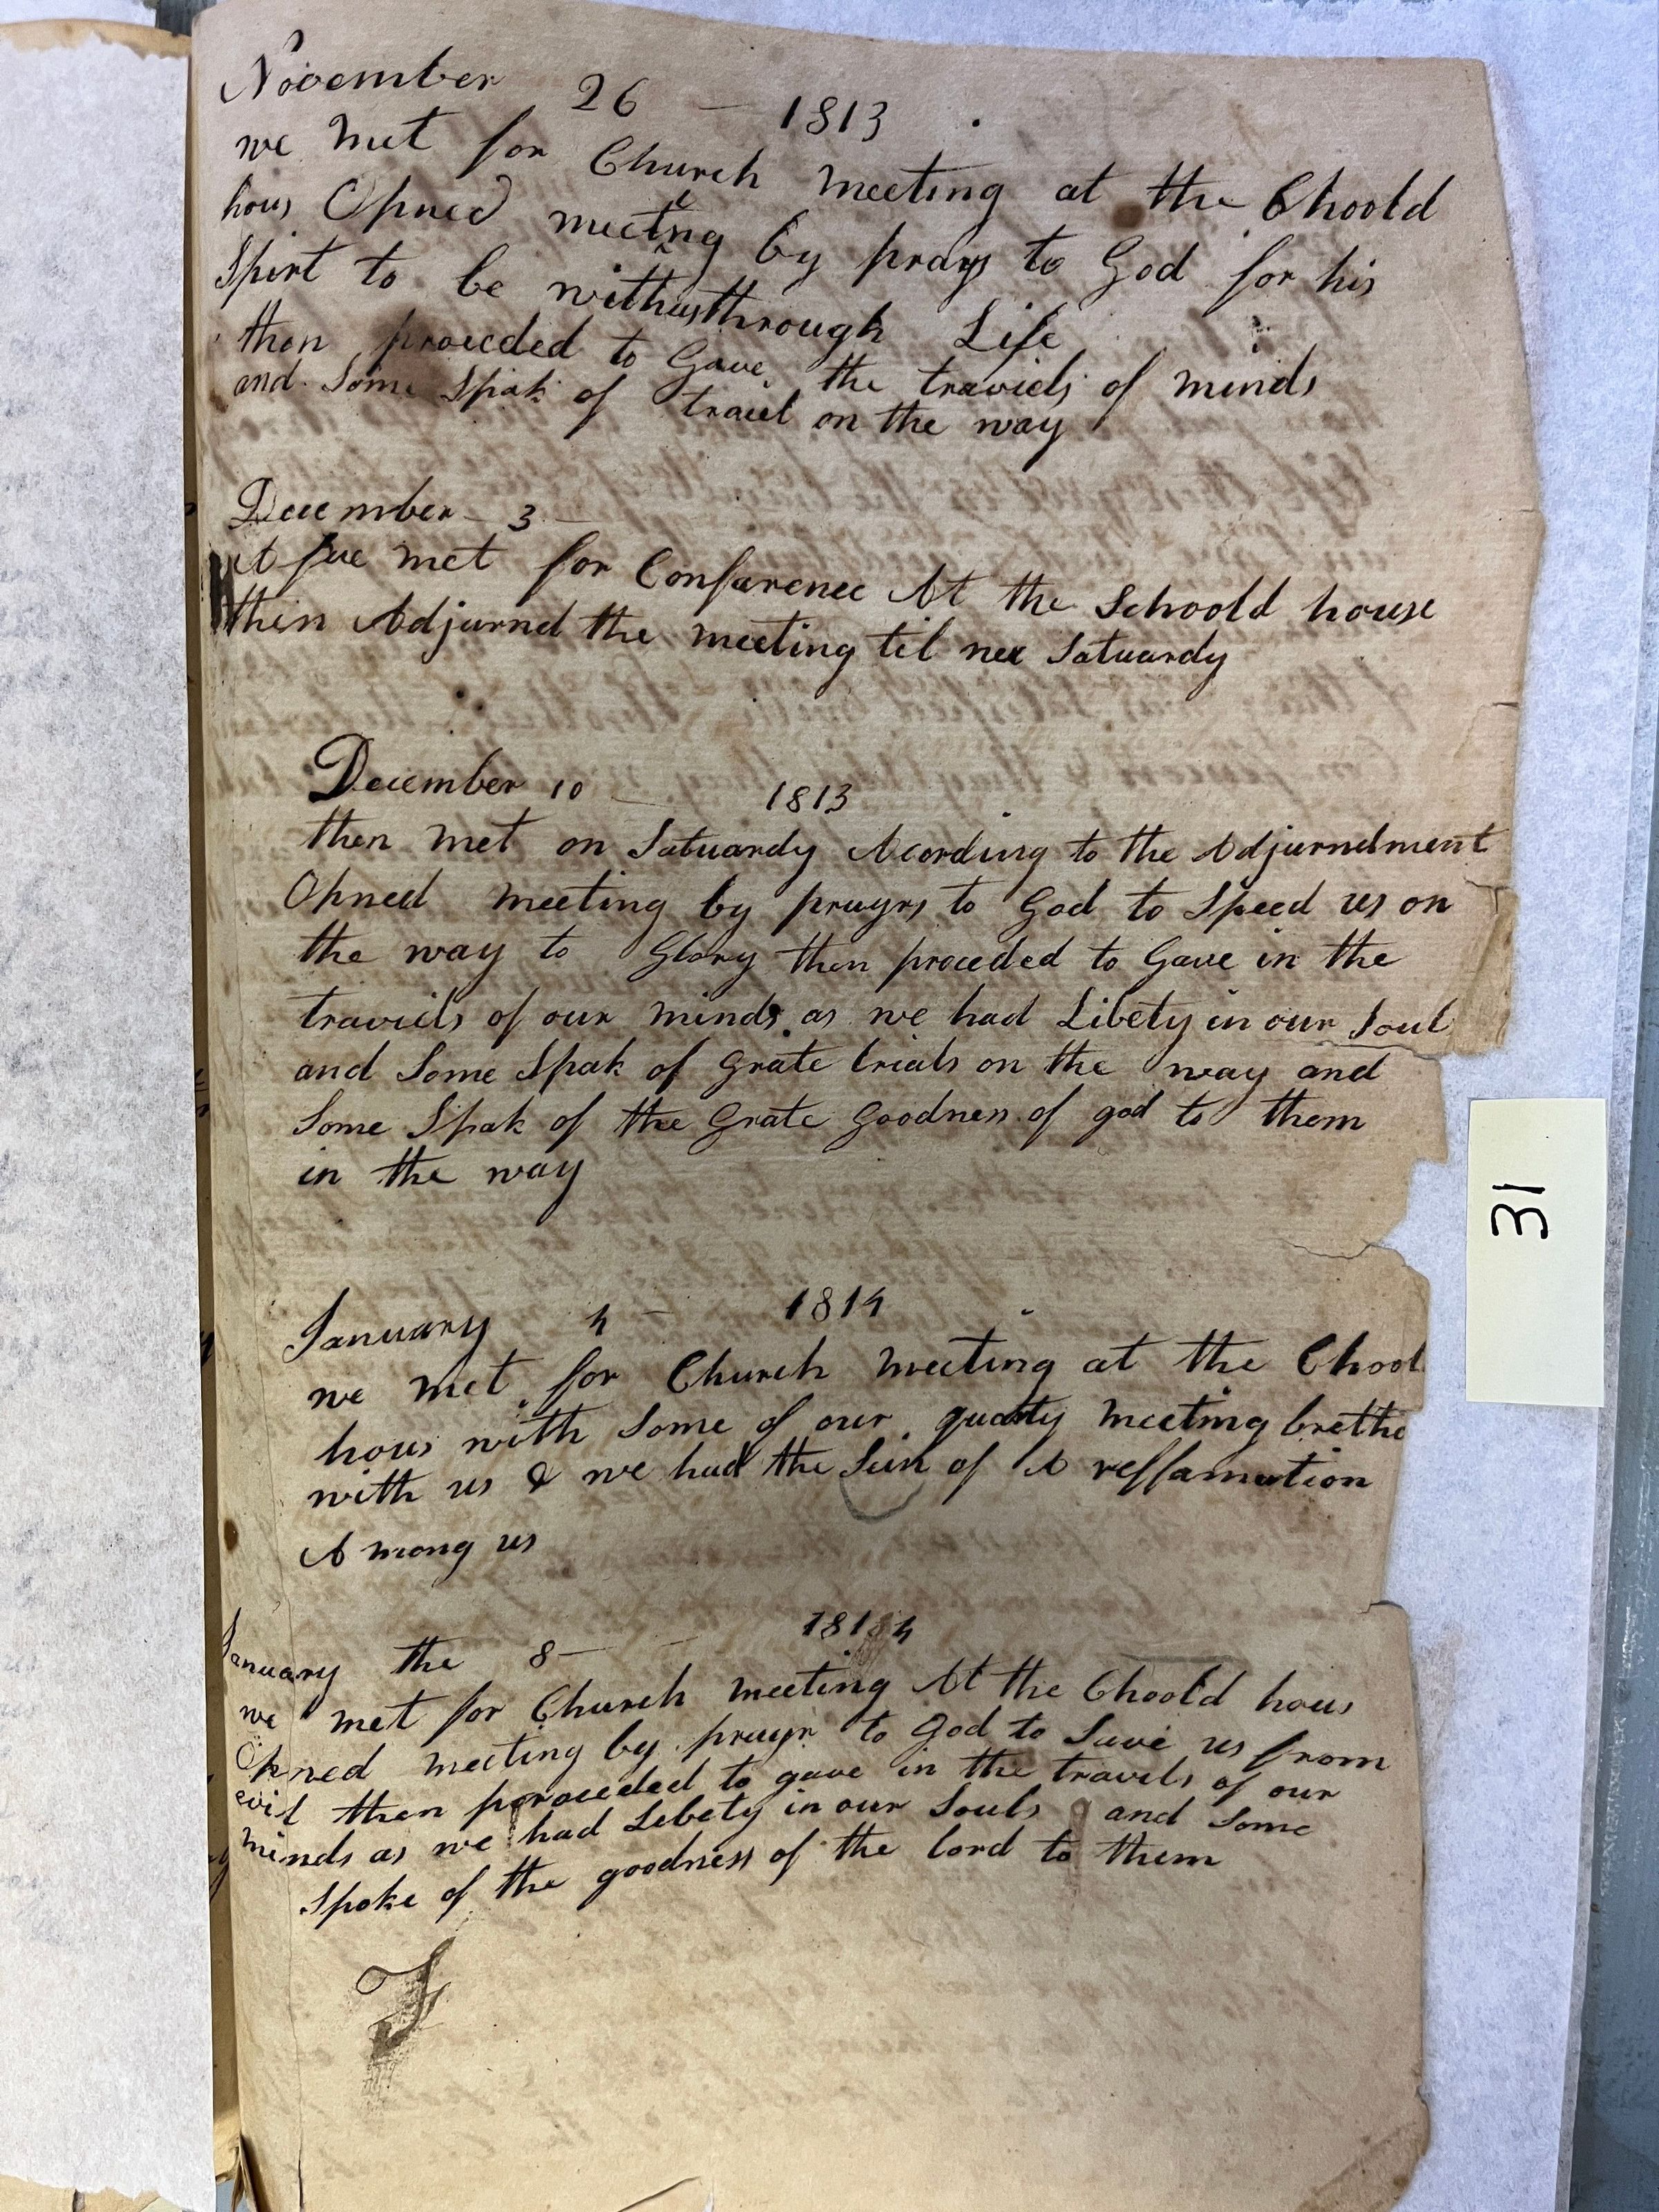 November 26 - 1813
we met for Church meeting at the Choold
hous Opned meeting by prays to God for his
Spirt to be with us through Life
then proceded to Gave the traviels of minds
and Some Spak of travel on the way
December - 3 -
A fue met for Confarence At the Schoold house
then Adjurnd the meeting til nex Satuardy
December 10 - 1813
then met on Satuardy Acording to the Adjurndment
Opned meeting by prayrs to God to Speed us on
the way to Glory then proceded to Gave in the
traviels of our minds as we had Libety in our Soul
and Some Spak of Grate trials on the way and
Some Spak of the Grate Goodness of god to them
in the way
January 4 - 1814
we met for Church meeting at the Chool
hous with Some of our quarty meeting brethe
with us & we had the of A reffamation
A mong us
January the 8 - - 1814
we met for Church meeting At the Choold hous
Opned meeting by prayr to God to Save us from
evil then proceded to gave in the travels of our
minds as we had Lebety in our Souls and Some
Spoke of the goodness of the lord to them
31